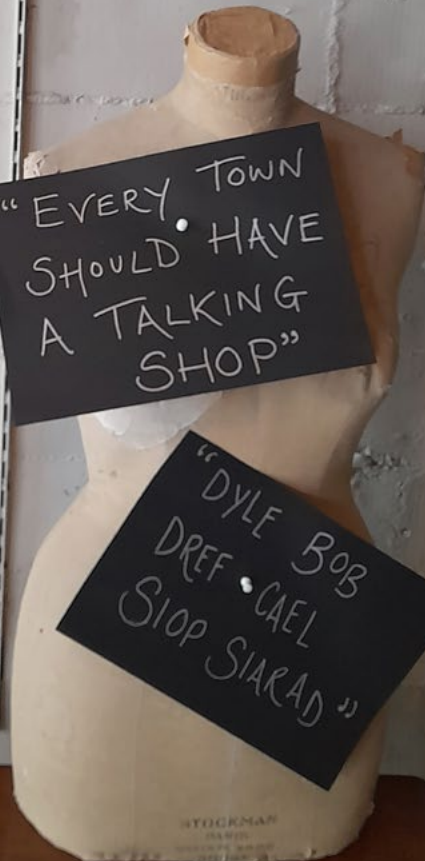 “EVERY TOWN
SHOULD HAVE
A TALKING
SHOP”
“DYLE BOB
DREF CAEL
SIOP SIARAD”
STOCKMAN
PARIS